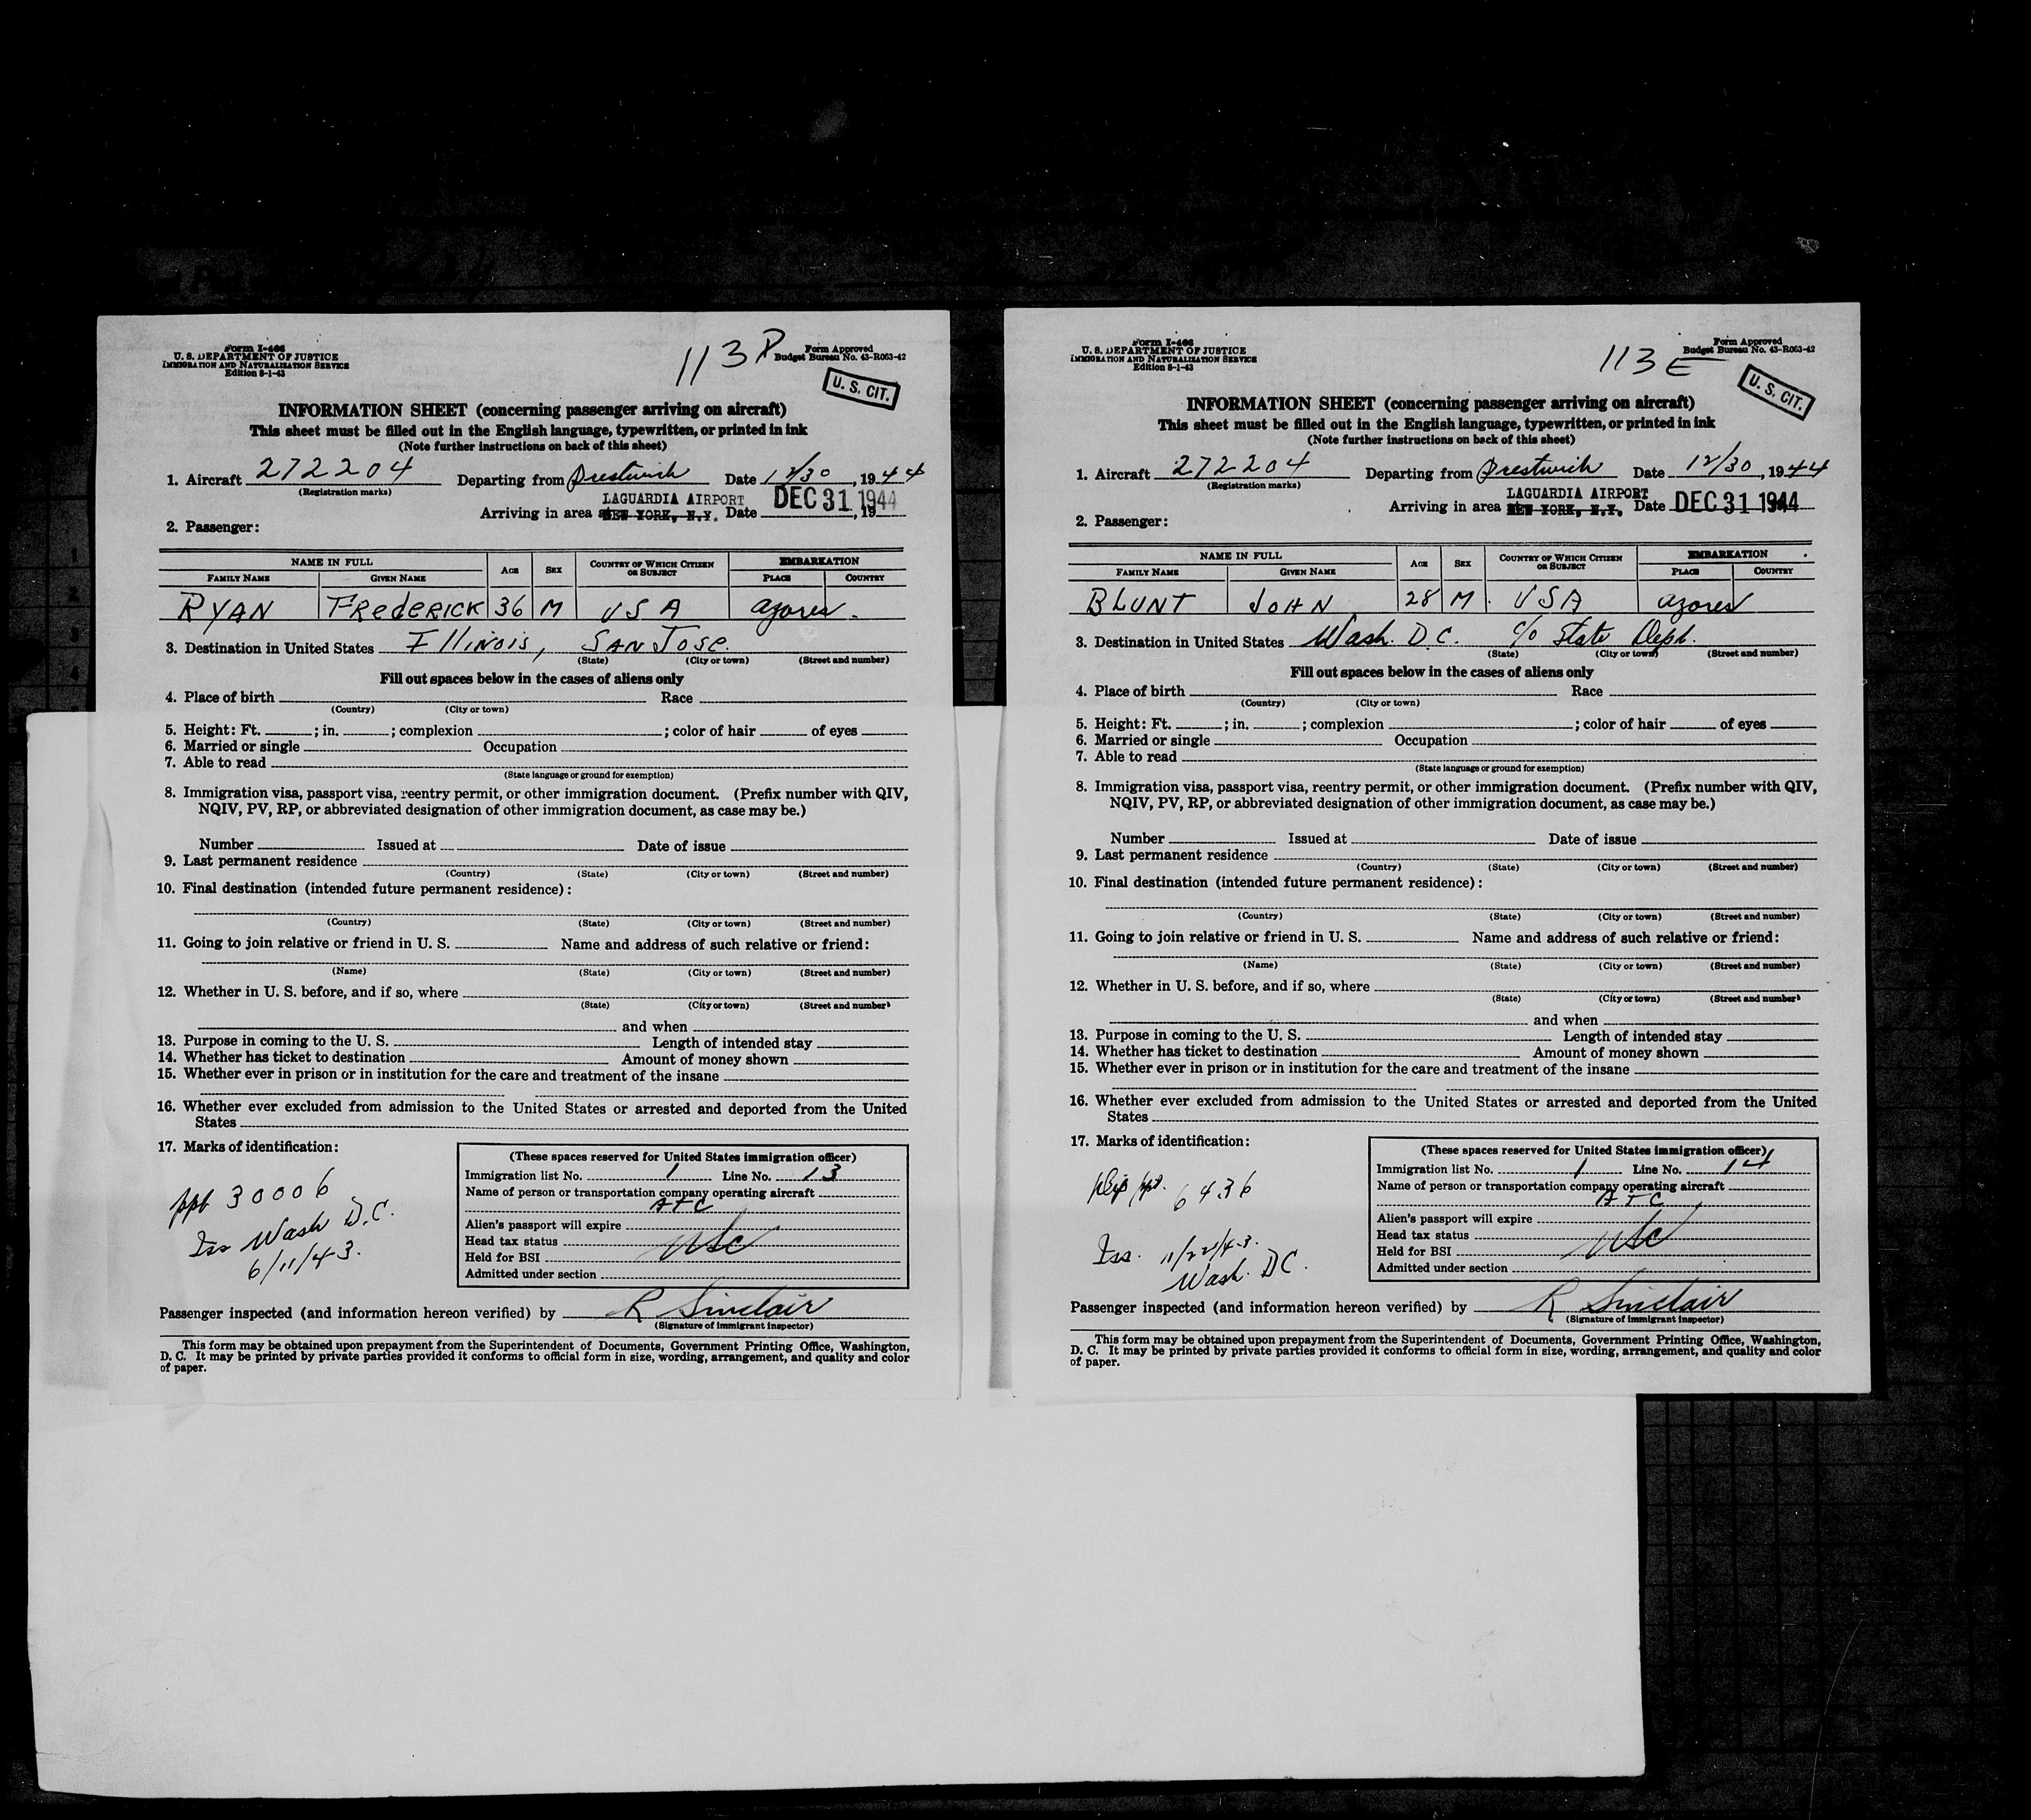 Form I-466
U. S. DEPARTMENT OF JUSTICE
IMMIGRATION AND NATURALIZATION SERVICE
Edition 8-1-43
113D
Form Approved
Budget Bureau No. 43-R063-42
U. S. CIT.
INFORMATION SHEET (concerning passenger arriving on aircraft)
This sheet must be filled out in the English language, typewritten, or printed in ink
(Note further instructions on back of this sheet)
1. Aircraft 272204 Departing from Prestwich Date 12/30, 1944
(Registration marks)
LAGUARDIA AIRPORT
Arriving in area at NEW YORK, N.Y. Date DEC 31 1944, 19
2. Passenger:
NAME IN FULL AGE SEX COUNTRY OF WHICH CITIZEN OR SUBJECT EMBARKATION
FAMILY NAME GIVEN NAME PLACE COUNTRY
RYAN FREDERICK 36 M USA Azores.
3. Destination in United States Illinois, SAN JOSE.
(State) (City or town) (Street and number)
Fill out spaces below in the cases of aliens only
4. Place of birth Race
(Country) (City or town)
5. Height: Ft. ; in. ; complexion ; color of hair of eyes
6. Married or single Occupation
7. Able to read
(State language or ground for exemption)
8. Immigration visa, passport visa, reentry permit, or other immigration document. (Prefix number with QIV,
NQIV, PV, RP, or abbreviated designation of other immigration document, as case may be.)
Number Issued at Date of issue
9. Last permanent residence
(Country) (State) (City or town) (Street and number)
10. Final destination (intended future permanent residence):
(Country) (State) (City or town) (Street and number)
11. Going to join relative or friend in U. S. Name and address of such relative or friend:
(Name) (State) (City or town) (Street and number)
12. Whether in U. S. before, and if so, where
(State) (City or town) (Street and number)
and when
13. Purpose in coming to the U. S. Length of intended stay
14. Whether has ticket to destination Amount of money shown
15. Whether ever in prison or in institution for the care and treatment of the insane
16. Whether ever excluded from admission to the United States or arrested and deported from the United
States
17. Marks of identification:
ppt 30006
Iss Wash D.C.
6/11/43.
(These spaces reserved for United States immigration officer)
Immigration list No. 1 Line No. 13
Name of person or transportation company operating aircraft
ATC
Alien's passport will expire
Head tax status USC
Held for BSI
Admitted under section
Passenger inspected (and information hereon verified) by R Sinclair
(Signature of immigrant inspector)
This form may be obtained upon prepayment from the Superintendent of Documents, Government Printing Office, Washington,
D. C. It may be printed by private parties provided it conforms to official form in size, wording, arrangement, and quality and color
of paper.
Form I-466
U. S. DEPARTMENT OF JUSTICE
IMMIGRATION AND NATURALIZATION SERVICE
Edition 8-1-43
113E
Form Approved
Budget Bureau No. 43-R063-42
U. S. CIT.
INFORMATION SHEET (concerning passenger arriving on aircraft)
This sheet must be filled out in the English language, typewritten, or printed in ink
(Note further instructions on back of this sheet)
1. Aircraft 272204 Departing from Prestwich Date 12/30, 1944
(Registration marks)
LAGUARDIA AIRPORT
Arriving in area NEW YORK, N.Y. Date DEC 31 1944
2. Passenger:
NAME IN FULL AGE SEX COUNTRY OF WHICH CITIZEN OR SUBJECT EMBARKATION
FAMILY NAME GIVEN NAME PLACE COUNTRY
BLUNT JOHN 28 M. USA Azores
3. Destination in United States Wash. D.C. c/o State Dept.
(State) (City or town) (Street and number)
Fill out spaces below in the cases of aliens only
4. Place of birth Race
(Country) (City or town)
5. Height: Ft. ; in. ; complexion ; color of hair of eyes
6. Married or single Occupation
7. Able to read
(State language or ground for exemption)
8. Immigration visa, passport visa, reentry permit, or other immigration document. (Prefix number with QIV,
NQIV, PV, RP, or abbreviated designation of other immigration document, as case may be.)
Number Issued at Date of issue
9. Last permanent residence
(Country) (State) (City or town) (Street and number)
10. Final destination (intended future permanent residence):
(Country) (State) (City or town) (Street and number)
11. Going to join relative or friend in U. S. Name and address of such relative or friend:
(Name) (State) (City or town) (Street and number)
12. Whether in U. S. before, and if so, where
(State) (City or town) (Street and number)
and when
13. Purpose in coming to the U. S. Length of intended stay
14. Whether has ticket to destination Amount of money shown
15. Whether ever in prison or in institution for the care and treatment of the insane
16. Whether ever excluded from admission to the United States or arrested and deported from the United
States
17. Marks of identification:
Dip ppt. 6436
Iss. 11/22/43.
Wash. DC.
(These spaces reserved for United States immigration officer)
Immigration list No. 1 Line No. 14
Name of person or transportation company operating aircraft
ATC
Alien's passport will expire
Head tax status USC
Held for BSI
Admitted under section
Passenger inspected (and information hereon verified) by R Sinclair
(Signature of immigrant inspector)
This form may be obtained upon prepayment from the Superintendent of Documents, Government Printing Office, Washington,
D. C. It may be printed by private parties provided it conforms to official form in size, wording, arrangement, and quality and color
of paper.